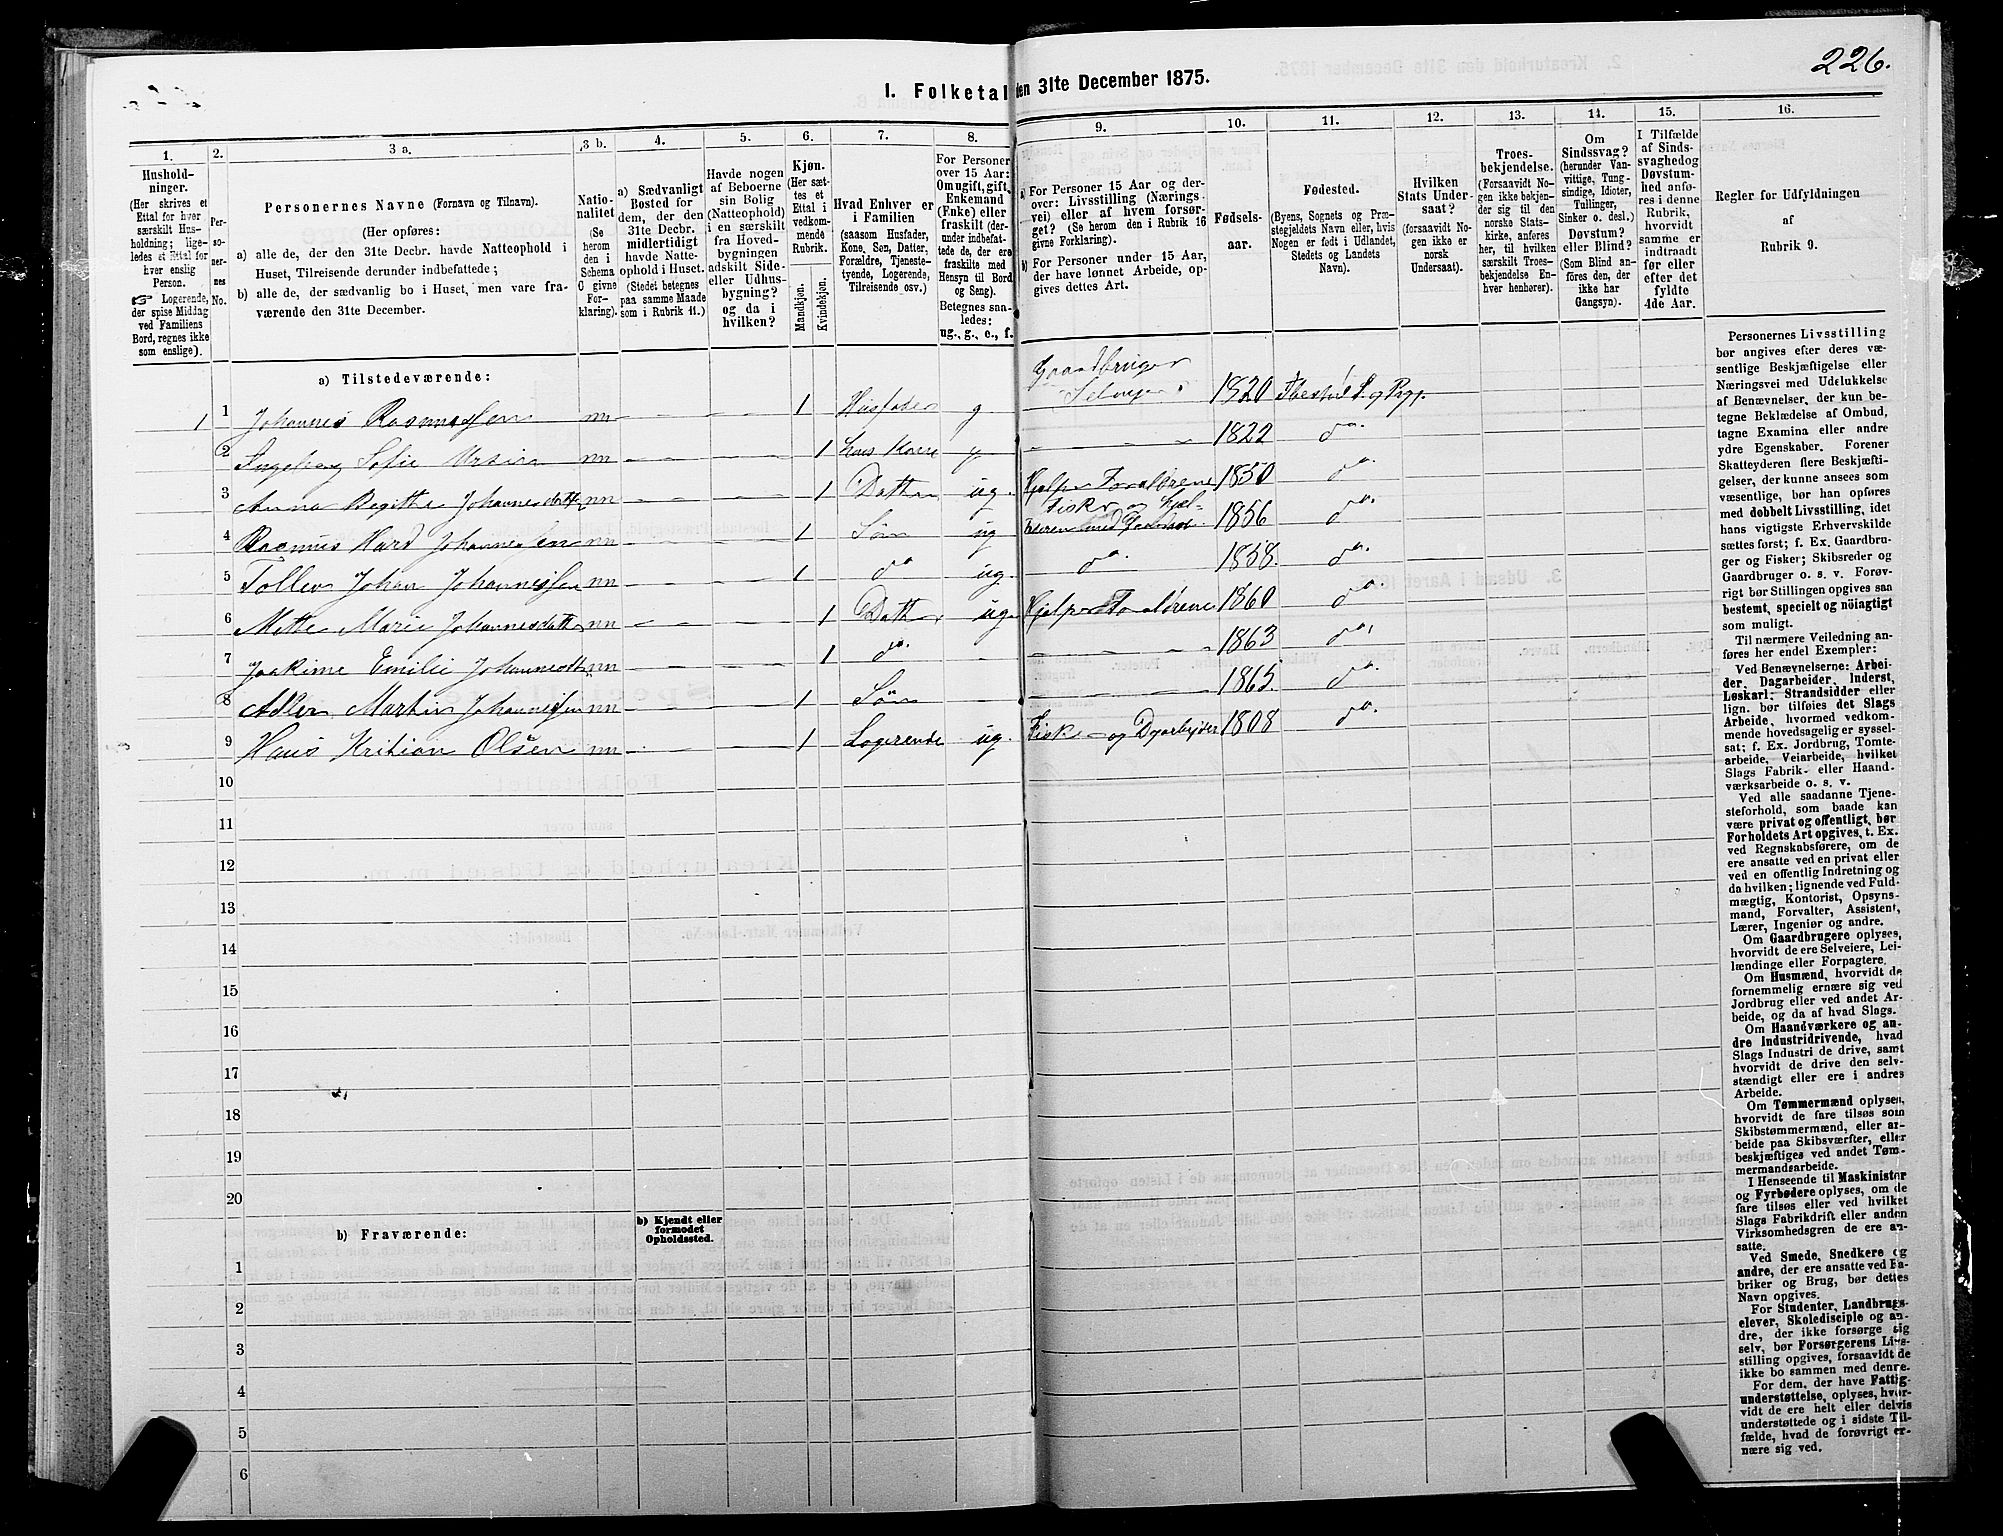 226.
I. Folketal den 31te December 1875.
1. 2. 3 a. 3 b. 4. 5. 6. 7. 8. 9. 10. 11. 12. 13. 14. 15. 16.
Husholdninger.
(Her skrives et
Ettal for hver
særskilt Husholdning;
ligeledes et Ettal for
hver enslig
Person.
☞ Logerende,
der spise Middag
ved Familiens
Bord, regnes ikke
som enslige).
Personernes
No.
Personernes Navne (Fornavn og Tilnavn).
(Her opføres:
a) alle de, der den 31te Decbr. havde Natteophold i
Huset, Tilreisende derunder indbefattede;
b) alle de, der sædvanlig bo i Huset, men vare fraværende
den 31te December.
Nationalitet
(Se
herom
den i
Schema
C givne
Forklaring).
a) Sædvanligt
Bosted for
dem, der den
31te Decbr.
midlertidigt
havde Natteophold
i Huset.
(Stedet betegnes
paa samme Maade
som i Rubrik 11.)
Havde nogen
af Beboerne
sin Bolig
(Natteophold)
i en særskilt
fra Hovedbygningen
adskilt Side-
eller Udhusbygning?
og da i
hvilken?
Kjøn.
(Her sættes
et Ettal i
vedkommende
Rubrik.
Mandkjøn.
Kvindekjøn.
Hvad Enhver er
i Familien
(saasom Husfader,
Kone, Søn, Datter,
Forældre, Tjenestetyende,
Logerende,
Tilreisende osv.)
For Personer
over 15 Aar:
Om ugift, gift,
Enkemand
(Enke) eller
fraskilt (derunder
indbefattede
de, der ere
fraskilte med
Hensyn til Bord
og Seng).
Betegnes saaledes:
ug., g., e., f.
a) For Personer 15 Aar og derover:
Livsstilling (Næringsvei)
eller af hvem forsørget?
(Se herom den i Rubrik 16
givne Forklaring).
b) For Personer under 15 Aar,
der have lønnet Arbeide, opgives
dettes Art.
Fødselsaar.
Fødested.
(Byens, Sognets og Præstegjeldets
Navn eller, hvis
Nogen er født i Udlandet,
Stedets og Landets
Navn).
Hvilken
Stats Undersaat?
(forsaavidt Nogen
ikke er
norsk
Undersaat).
Troesbekjendelse.
(Forsaavidt Nogen
ikke bekjender
sig til den
norske Statskirke,
anføres
her, til hvilken
særskilt Troesbekjendelse
Enhver
henhører).
Om
Sindssvag?
(herunder Vanvittige,
Tungsindige,
Idioter,
Tullinger,
Sinker o. desl.)
Døvstum?
eller Blind?
(Som Blind anføres
den, der
ikke har
Gangsyn).
I Tilfælde
af Sindssvaghed
og
Døvstumhed
anføres
i denne
Rubrik,
hvorvidt
samme er
indtraadt
før eller
efter det
fyldte
4de Aar.
Regler for Udfyldningen
af
Rubrik 9.
a) Tilstedeværende:
1 1 Johannes Rasmussen nn 1 Husfader g Gaardbruger Selveier 1820 Ibestad S. og Pgj.
2 Ingeborg Sofie nn 1 hans Kone g 1822 do.
3 Anna Begitte Johannesdatt nn 1 Datter ug. Hjelper Forældrene 1850 do.
4 Rasmus Hard Johannessen nn 1 Søn ug 1856 do.
5 Tollev Johan Johannessen nn 1 do ug. do. 1858. do.
6 Mette Marie Johannesdatt nn 1 Datter ug. Hjelper Forældrene 1860 do.
7 Joakime Emilie Johannesdtt nn 1 do. 1863 do.
8 Adler Martin Johannessen nn 1 Søn 1865. do.
9 Hans Kristian Olsen nn 1 Logerende ug. Fisker og 1808 do.
10
11
12
13
14
15
16
17
18
19
20
b) Fraværende:
b) Kjendt eller
formodet
Opholdssted.
1
2
3
4
5
6
Personernes Livsstilling
bør angives efter deres væsentlige
Beskjæftigelse eller
Næringsvei med Udelukkelse
af Benævnelser, der kun betegne
Beklædelse af Ombud,
tagne Examina eller andre
ydre Egenskaber. Forener
Skatteyderen flere Beskjæftigelser,
der kunne ansees som
væsentlige, bør han opføres
med dobbelt Livsstilling, idet
hans vigtigste Erhvervskilde
sættes først; f. Ex. Gaardbruger
og Fisker; Skibsreder og
Gaardbruger o. s. v. Forøvrigt
bør Stillingen opgives saa
bestemt, specielt og nöiagtigt
som muligt.
Til nærmere Veiledning anføres
her endel Exempler:
Ved Benævnelserne: Arbeider,
Dagarbeider, Inderst,
Løskarl, Strandsidder eller
lign. bør tilføies det Slags
Arbeide, hvormed vedkommende
hovedsagelig er sysselsat;
f. Ex. Jordbrug, Tomtearbeide,
Veiarbeide, hvilket
Slags Fabrik- eller Haandværksarbeide
o. s. v.
Ved alle saadanne Tjenesteforhold,
som baade kan
være privat og offentligt, bør
Forholdets Art opgives, t. Ex.
ved Regnskabsførere, om de
ere ansatte ved en privat eller
ved en offentlig Indretning og
da hvilken; lignende ved Fuldmægtig,
Kontorist, Opsynsmand,
Forvalter, Assistent,
Lærer, Ingeniør og andre.
Om Gaardbrugere oplyses,
hvorvidt de ere Selveiere, Leilændinge
eller Forpagtere.
Om Husmænd, hvorvidt de
fornemmelig ernære sig ved
Jordbrug eller ved andet Arbeide,
og da af hvad Slags.
Om Haandværkere og andre
Industridrivende, hvad
Slags Industri de drive, samt
hvorvidt de drive den selvstændigt
eller ere i andres
Arbeide.
Om Tømmermænd oplyses,
hvorvidt de fare tilsøs som
Skibstømmermænd, eller arbeide
paa Skibsværfter, eller
beskjæftiges ved andet Tømmermandsarbeide.
I Henseende til Maskinister
og Fyrbødere oplyses, om de
fare tilsøs eller ved hvilket
Slags Fabrikdrift eller anden
Virksomhedsgren de ere ansatte.
Ved Smede, Snedkere og
andre, der ere ansatte ved Fabriker
og Brug, bør dettes
Navn opgives.
For Studenter, Landbrugselever,
Skoledisciple og andre,
der ikke forsørge sig
selv, bør Forsørgerens Livsstilling
opgives, forsaavidt de
ikke bo sammen med denne.
For dem, der have Fattigunderstøttelse,
oplyses, hvorvidt
de ere helt eller delvis
understøttede og i sidste Tilfælde,
hvad de forøvrigt ernære
sig ved.